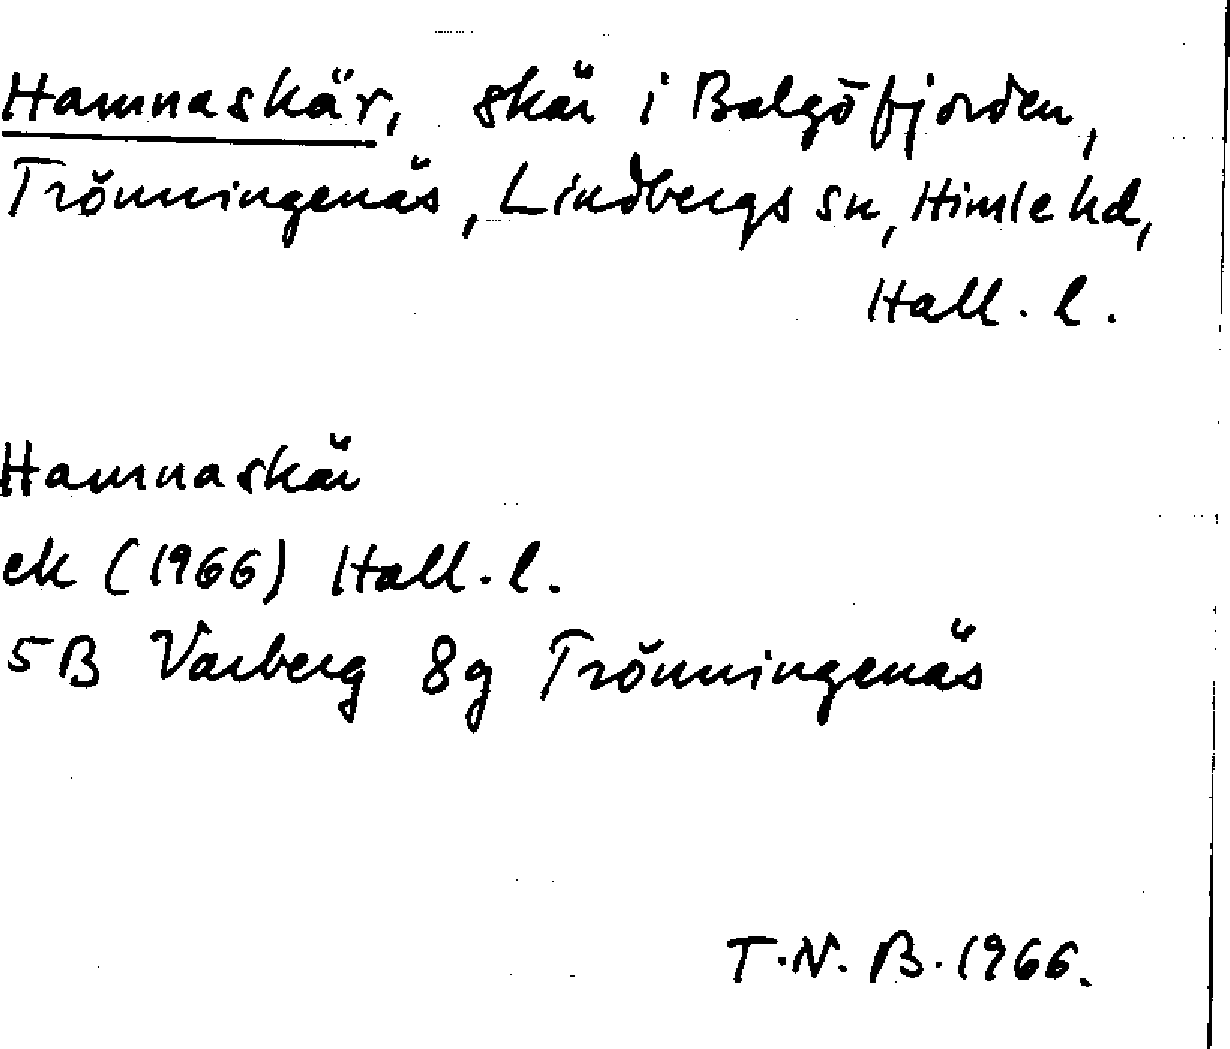 Hamnaskär, skär i Balgöfjorden,
Trönningenäs, Lindbergs sn, Himle hd,
Hall. l.
Hamnaskär
ek (1966) Hall. l.
5B Varberg 8g Trönningenäs
T.N.B. 1966.